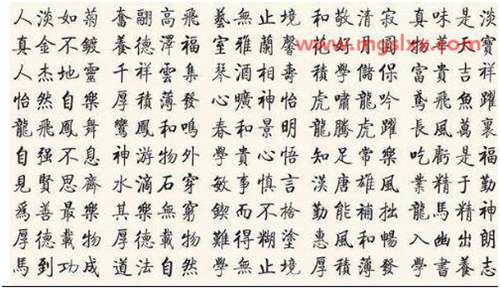 人淡如菊 奮翮高飛 藝無止境 和敬清寂 真味是淡
真金不鍍 養德澤福 室雅蘭馨 好月圓 物天寶
人杰地靈 千祥雲集 琴酒相壽 積學儲 富貴吉祥
怡然自樂 厚積薄發 心曠神怡 虎嘯龍吟 鳶飛魚躍
龍飛鳳舞 鸞鳳和鳴 春和景明 龍騰虎躍 長風萬裏
自强不息 神游物外 學貴心悟 知足常樂 吃虧是福
見賢思齊 水滴石穿 敏事慎言 漢唐雄風 業精于勤
爲善最樂 其樂無窮 鍥而不捨 勤能補拙 龍馬精神
厚德載物 厚德載物 難得糊塗 惠風和暢 入幽出朗
馬到功成 道法自然 學無止境 厚積薄發 學書養志